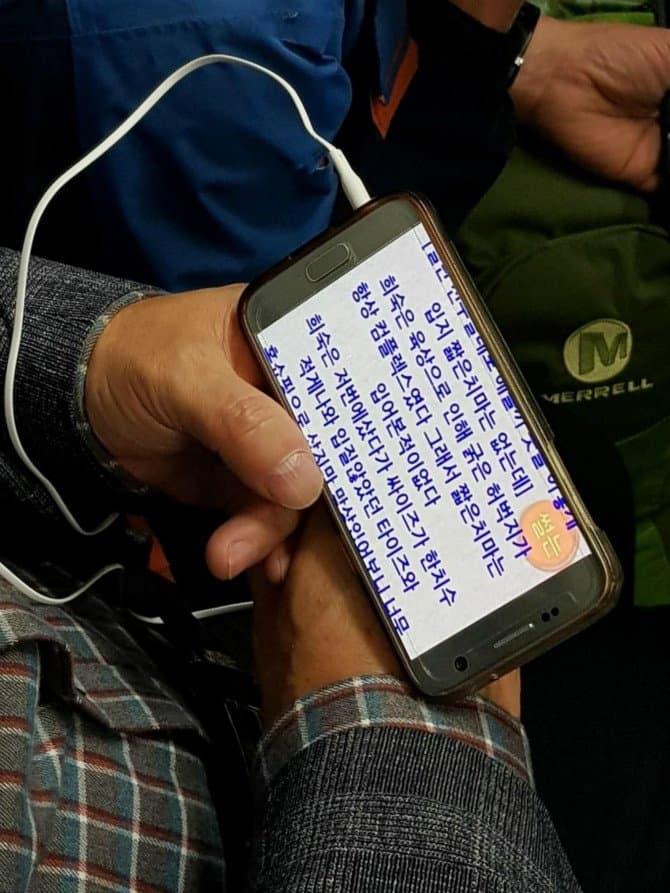 입지 짧은치마는 없는데]
희숙은 육상으로 인해 굵은 허벅지가
항상 컴플렉스였다 그래서 짧은치마는
입어본적이없다
희숙은 저번에샀다가 싸이즈가 한치수
적게나와 입질않았던 타이즈와
썰는
M
MERRELL